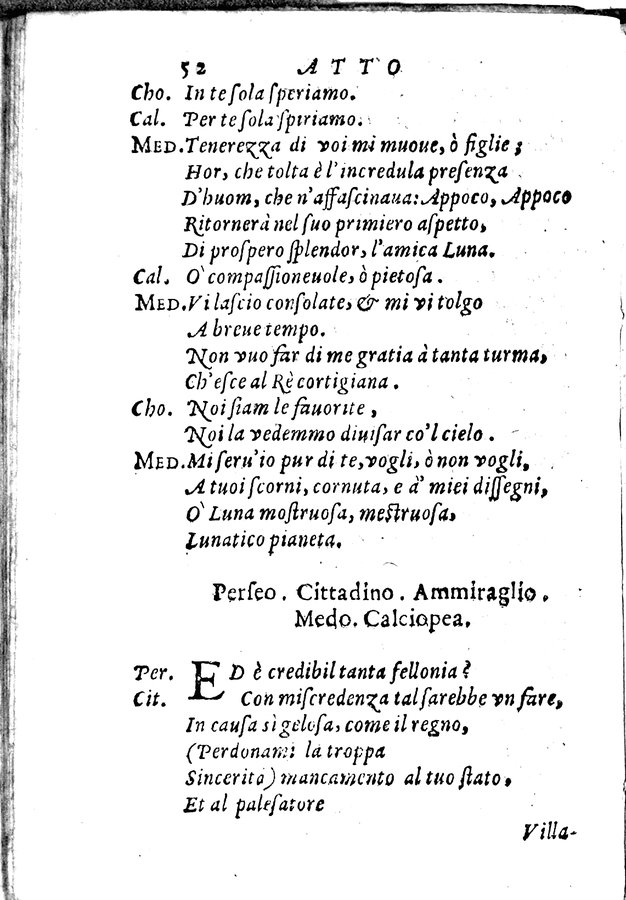 52 ATTO
Cho. In te ſola ſperiamo.
Cal. Per te ſola ſpiriamo.
MED. Tenerezza di voi mi muoue, ò figlie;
Hor, che tolta è l'incredula preſenza
D'huom, che n'affaſcinaua: Appoco, Appoco
Ritornerà nel ſuo primiero aſpetto,
Di proſpero ſplendor, l'amica Luna.
Cal. O' compaſſioneuole, ò pietoſa.
MED. Vi laſcio conſolate, & mi vi tolgo
A breue tempo.
Non vuo far di me gratia à tanta turma,
Ch'eſce al Rè cortigiana.
Cho. Noi ſiam le fauorite,
Noi la vedemmo diuiſar co'l cielo.
MED. Mi ſeru'io pur di te, vogli, ò non vogli,
A tuoi ſcorni, cornuta, e a' miei diſſegni,
O' Luna moſtruoſa, meſtruoſa,
Lunatico pianeta.
Perſeo. Cittadino. Ammiraglio.
Medo. Calciopea.
Per. ED è credibil tanta fellonia?
Cit. Con miſcredenza tal ſarebbe vn fare,
In cauſa sì geloſa, come il regno,
(Perdonami la troppa
Sincerità) mancamento al tuo ſtato,
Et al paleſatore
Villa-